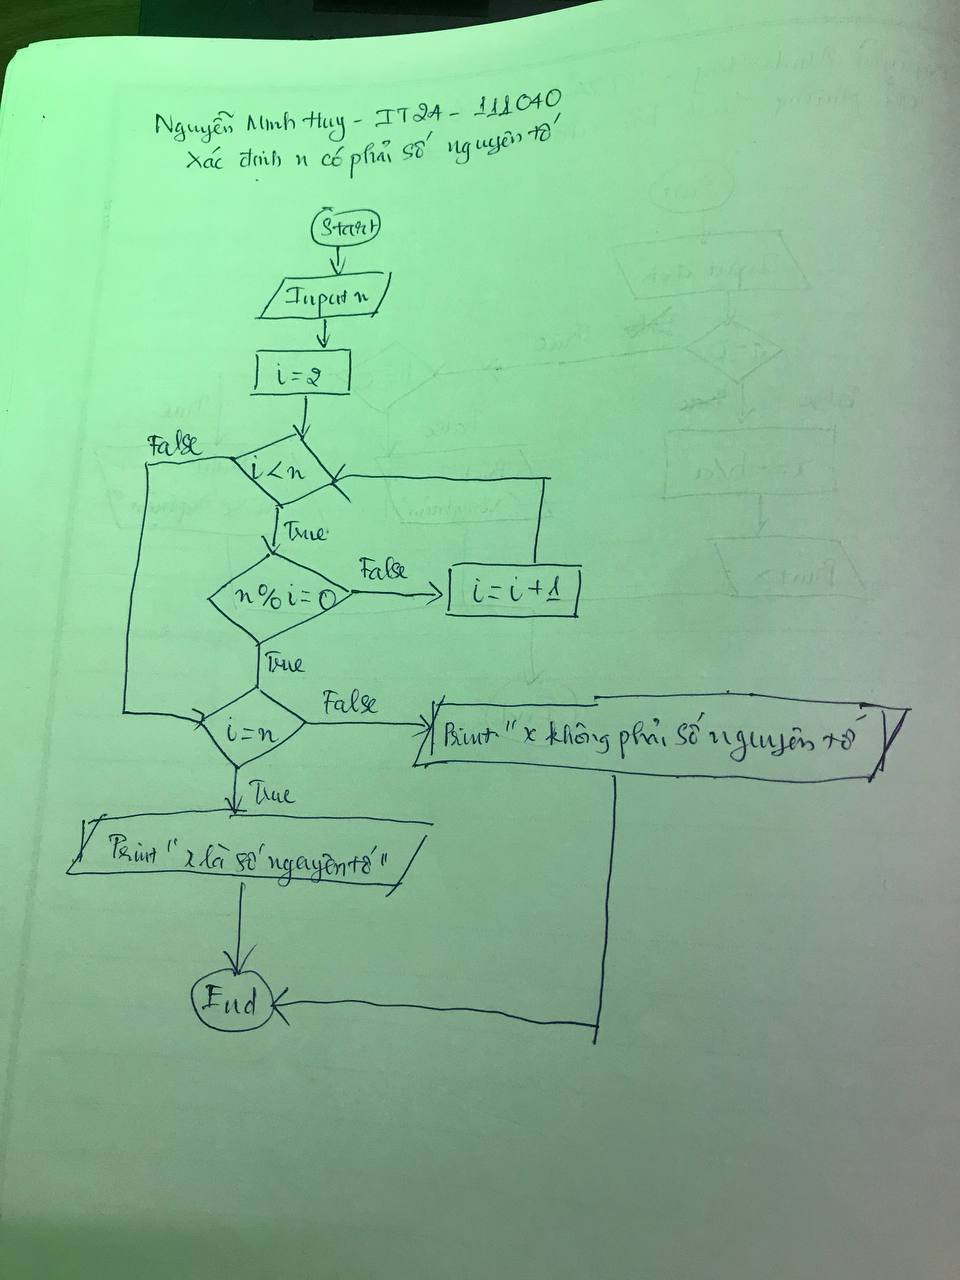 Nguyễn Minh Huy - IT2A - 111040
Xác định n có phải số nguyên tố
Start
Input n
i=2
False
i<n
True
n%i=0
False
i=i+1
True
i=n
False
Print "x không phải số nguyên tố
True
Print "x là số nguyên tố"
End